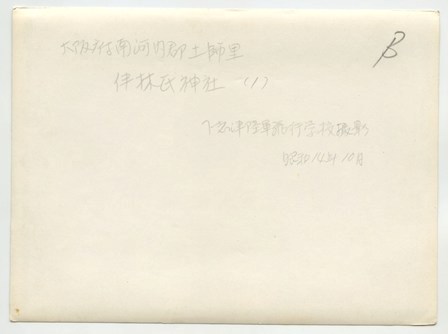 B
大阪府南河内郡土師里
伴林氏神社 (1)
下志津陸軍飛行学校撮影
昭和 年 10月